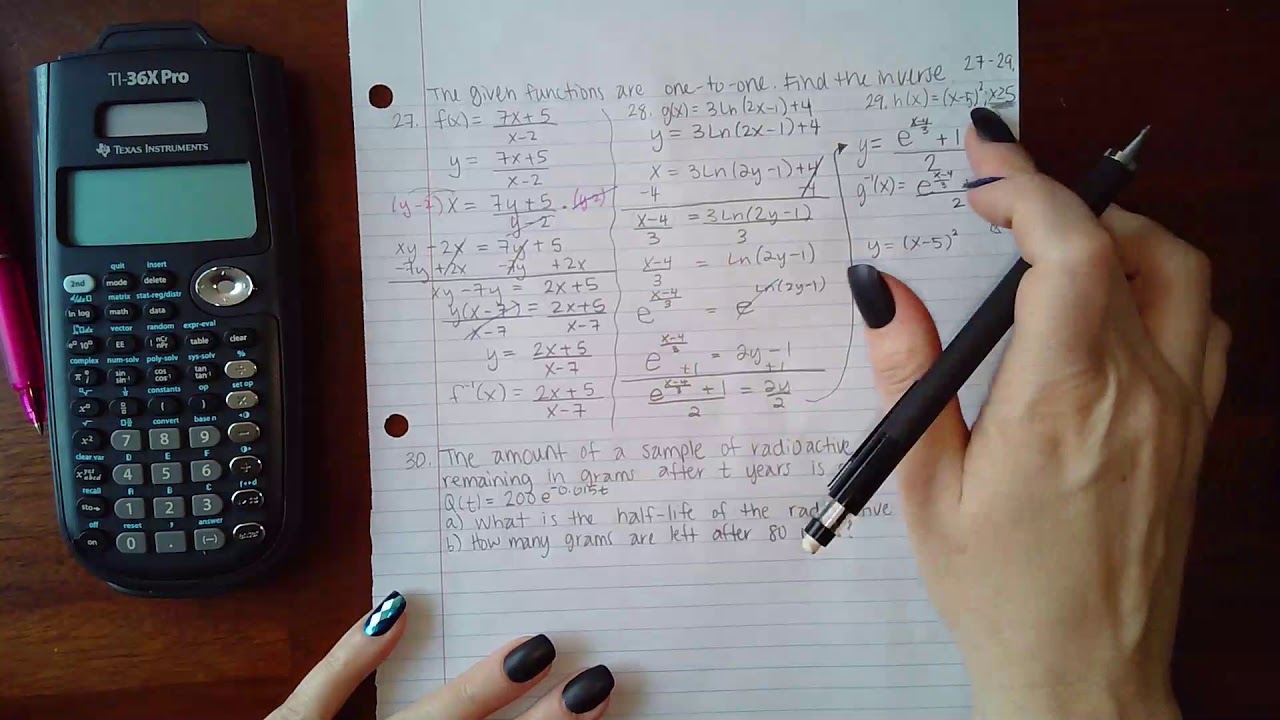 The given functions are one-to-one. Find the inverse 27-29.
27. f(x) = (7x+5)/(x-2)
y = (7x+5)/(x-2)
(y-2)x = (7y+5)/(y-2) · (y-2)
xy - 2x = 7y + 5
-7y +2x -7y +2x
xy - 7y = 2x + 5
y(x-7)/(x-7) = (2x+5)/(x-7)
y = (2x+5)/(x-7)
f⁻¹(x) = (2x+5)/(x-7)
28. g(x) = 3Ln(2x-1)+4
y = 3Ln(2x-1)+4
x = 3Ln(2y-1)+4
-4 -4
(x-4)/3 = 3Ln(2y-1)/3
(x-4)/3 = Ln(2y-1)
e^((x-4)/3) = e^(Ln(2y-1))
e^((x-4)/3) = 2y-1
+1 +1
(e^((x-4)/3) + 1)/2 = 2y/2
29. h(x) = (x-5)², x≥5
y = (e^((x-4)/3) + 1)/2
g⁻¹(x) = e^((x-4)/3) /2
y = (x-5)²
30. The amount of a sample of radioactive
remaining in grams after t years is
Q(t) = 200e^(-0.015t)
a) What is the half-life of the
b) How many grams are left after 80 ?
TI-36X Pro
TEXAS INSTRUMENTS
quit insert
2nd mode delete
matrix stat-reg/distr
ln log math data
vector random expr-eval
EE nCr nPr table clear
complex num-solv poly-solv sys-solv %
π sin cos tan ÷
constants op set op
( )
convert base n
x² 7 8 9
clear var D E F
4 5 6
recall A B C
sto→ 1 2 3
off reset , answer
on 0 . (−)